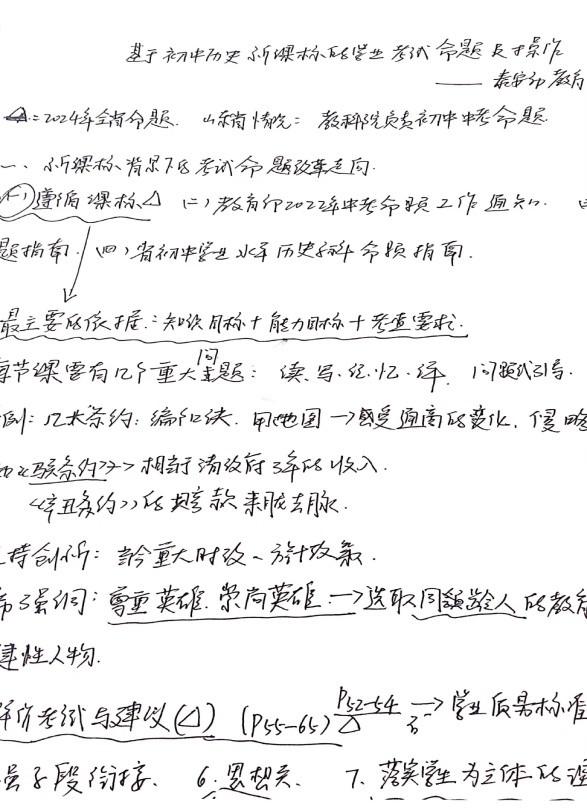 基于初中历史新课标的学业考试命题及操作
—— 泰安 教育
△:2024年全省命题. 山东省情况: 教科院负责初中中考命题
一、新课标背景下的考试命题改革走向.
(一)遵循课标△ (二)教育部2022年中考命题工作通知.
题指南. (四)省初中学业水平历史学科命题指南.
最主要的依据:知识目标+能力目标+考查要求.
每节课要有几个重大问题: 读.写.说.忆.评. 问题式引导.
例:几大条约:编口诀. 用地图→感受通商的变化,侵略
《马关条约》→相当清政府3年的收入.
《辛丑条约》的赔款来龙去脉.
持创新: 结合重大时政、方针政策.
强调: 尊重英雄.崇尚英雄.→选取同龄人的教育
性人物.
评价考试与建议(△) (P55-65) P52-54 △ → 学业质量标准
学段衔接. 6. 思想关. 7. 落实学生为主体的